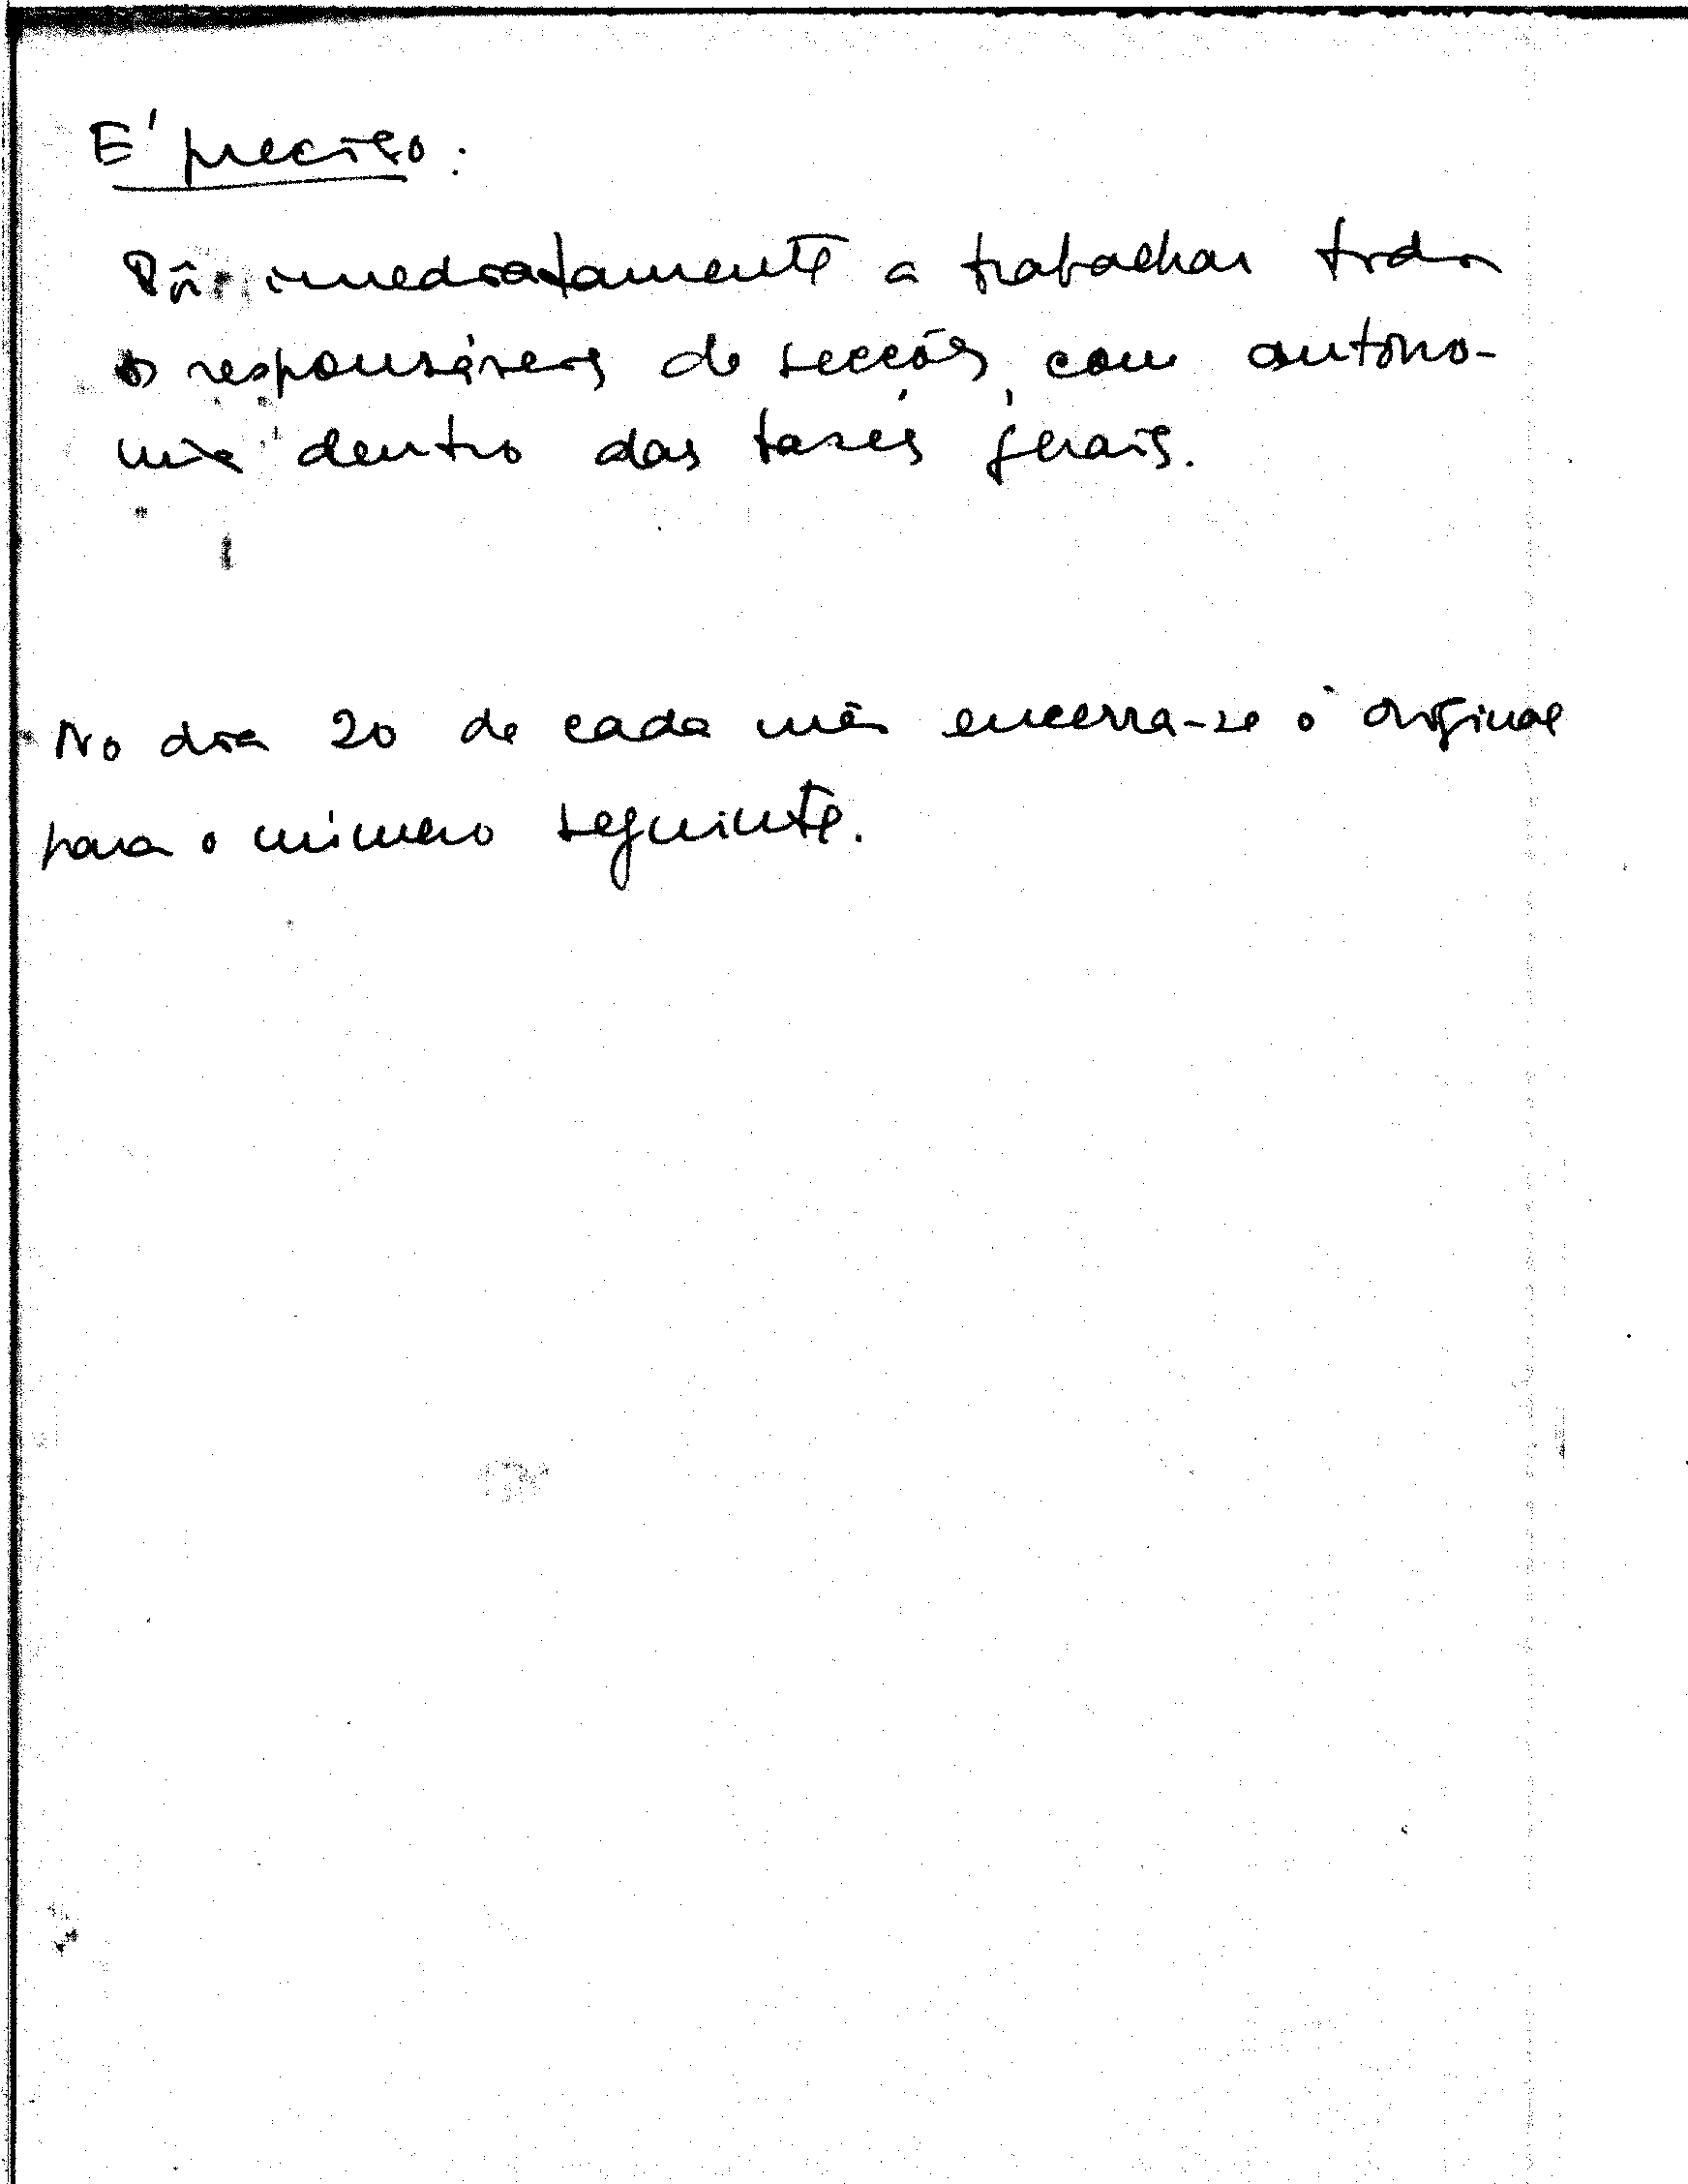 E' preciso:
Pôr imediatamente a trabalhar todos
os responsáveis de secções, com autono-
mia dentro das bases gerais.
No dia 20 de cada mês encerra-se o original
para o número seguinte.